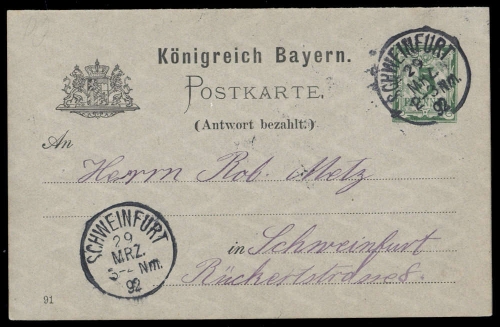 Königreich Bayern.
POSTKARTE.
(Antwort bezahlt.)
SCHWEINFURT
29
MRZ.
Nm.
92
An
Herrn Rob. Metz
in Schweinfurt
Rückertstrasse
SCHWEINFURT
29
MRZ.
Nm.
92
91